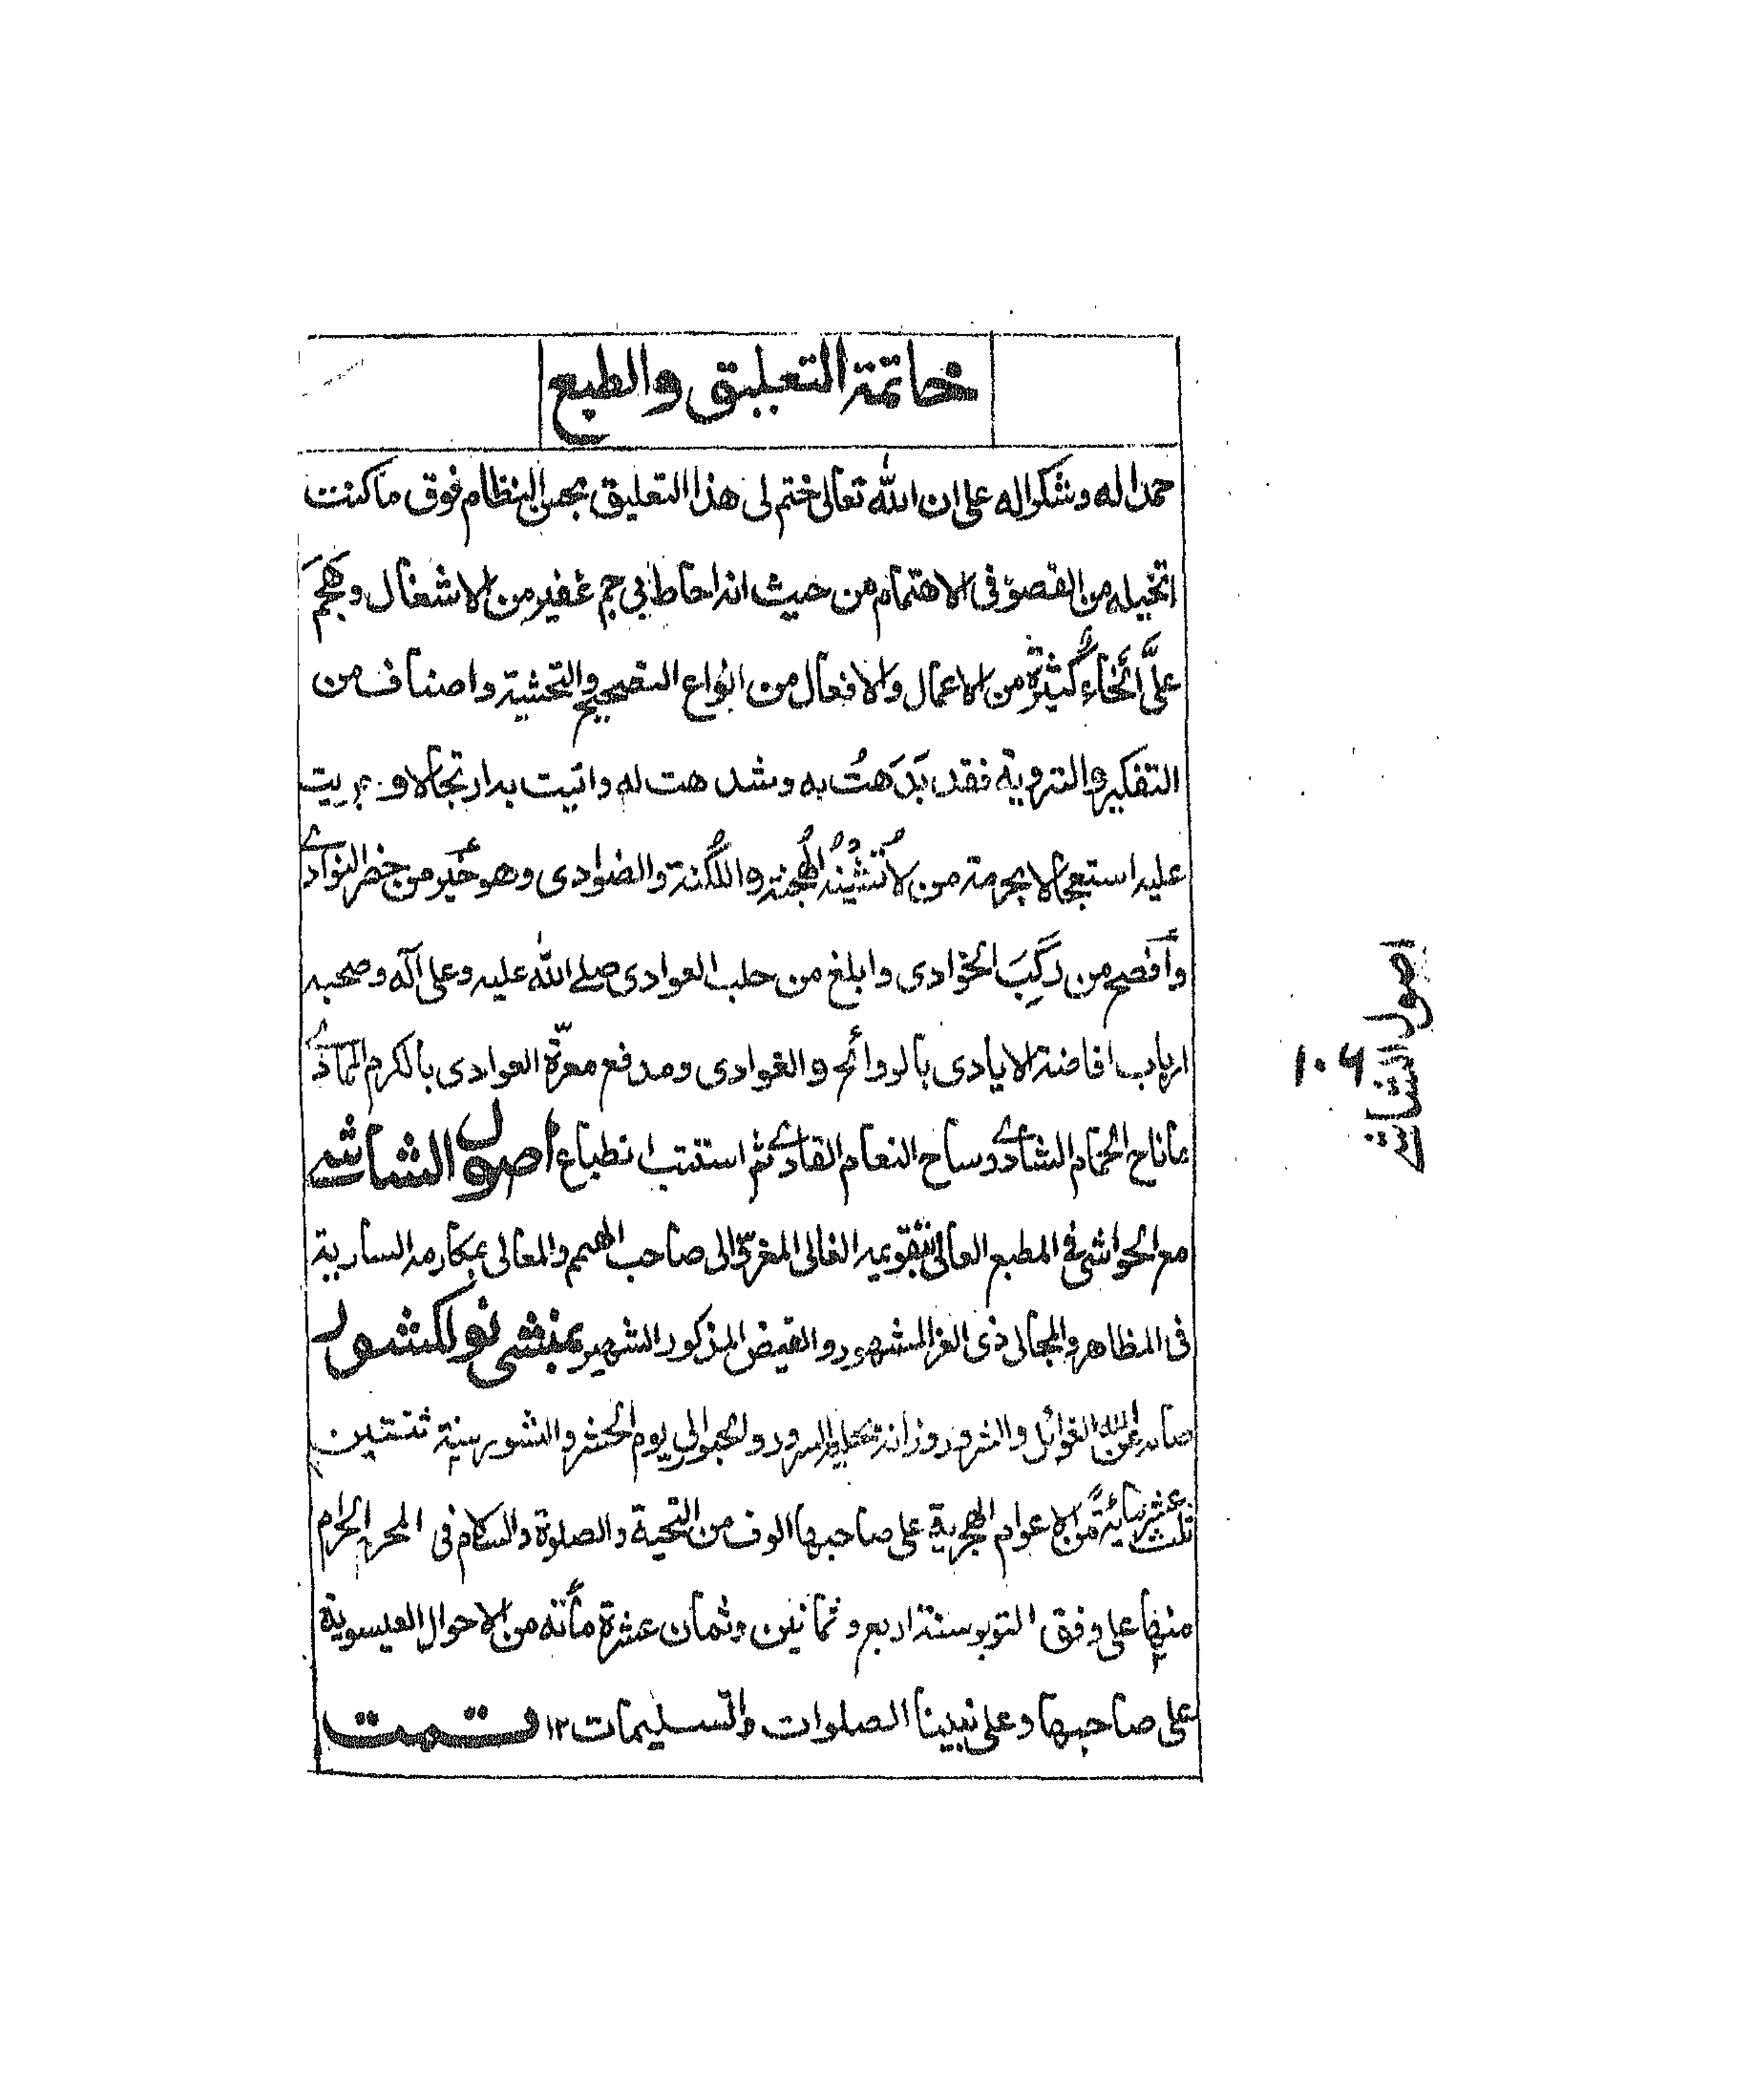 خاتمة التعليق والطبع
حمدا له وشكرا له على ان الله تعالى ختم لى هذا التعليق بحسن النظام فوق ما كنت
اتخيله من القصور فى الاهتمام من حيث انه احاط بي جم غفير من الاشغال وهَجَمَ
علىَّ أنحَاءٌ كثيرةٌ من الاعمال والافعال من انواع التصحيح والتحشية واصناف من
التفكير والتروية فقد بَدَهتُ به وشدهت له واتيت به ارتجالا و
عليه استعجالا بحرمة من لا تُشينُه الهُجنة واللُّكنة والضوادى وهو خَير من حضر النوادے
وأفصح من ركِبَ الخوادى وابلغ من حلب العوادى صلے الله عليه وعلى آله وصحبه
ارباب افاضة الايادى بالروائح والغوادى ومدفع معرّة العوادى بالكرم الماذے
ما ناح الحمام الشادے وساح النعام القادے ثم استتب انطباع اصول الشاشے
مع الحواشى فى المطبع العالى بتقويمه الغالى المغرىّ الى صاحب الهمم والمعالى بمكارمه السارية
فى المظاهر والمجالى ذى العز المشهور والفيض المذكور الشهير بمنشى نولكشور
صانه الله عن الغوائل والشرور وزانه بحلية السرور والحبور الى يوم الحشر والنشور سنة ثنتين
وثلث عشر مائةً من الاعوام الهجرية على صاحبها الوف من التحية والصلوة والسلام فى المحرم الحرام
منها على وفق اكتوبر سنة اربع وثمانين وثمان عشرة مأته من الاحوال العيسوية
على صاحبها وعلى نبينا الصلوات والتسليمات ١٢ تمت
اصول الشاشے
١٠٦